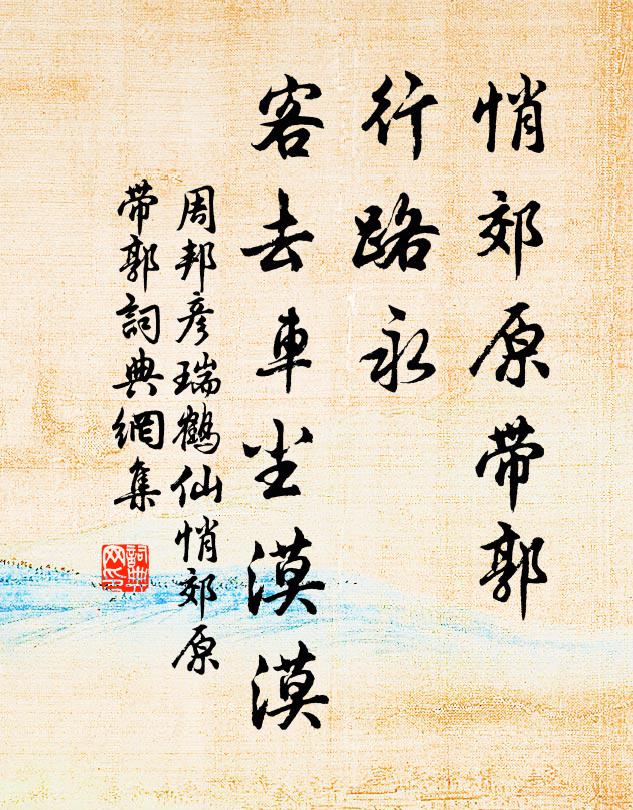 悄郊原带郭
行路永
客去車尘漠漠
周邦彦瑞鶴仙悄郊原
带郭詞典網集
詞典
网印